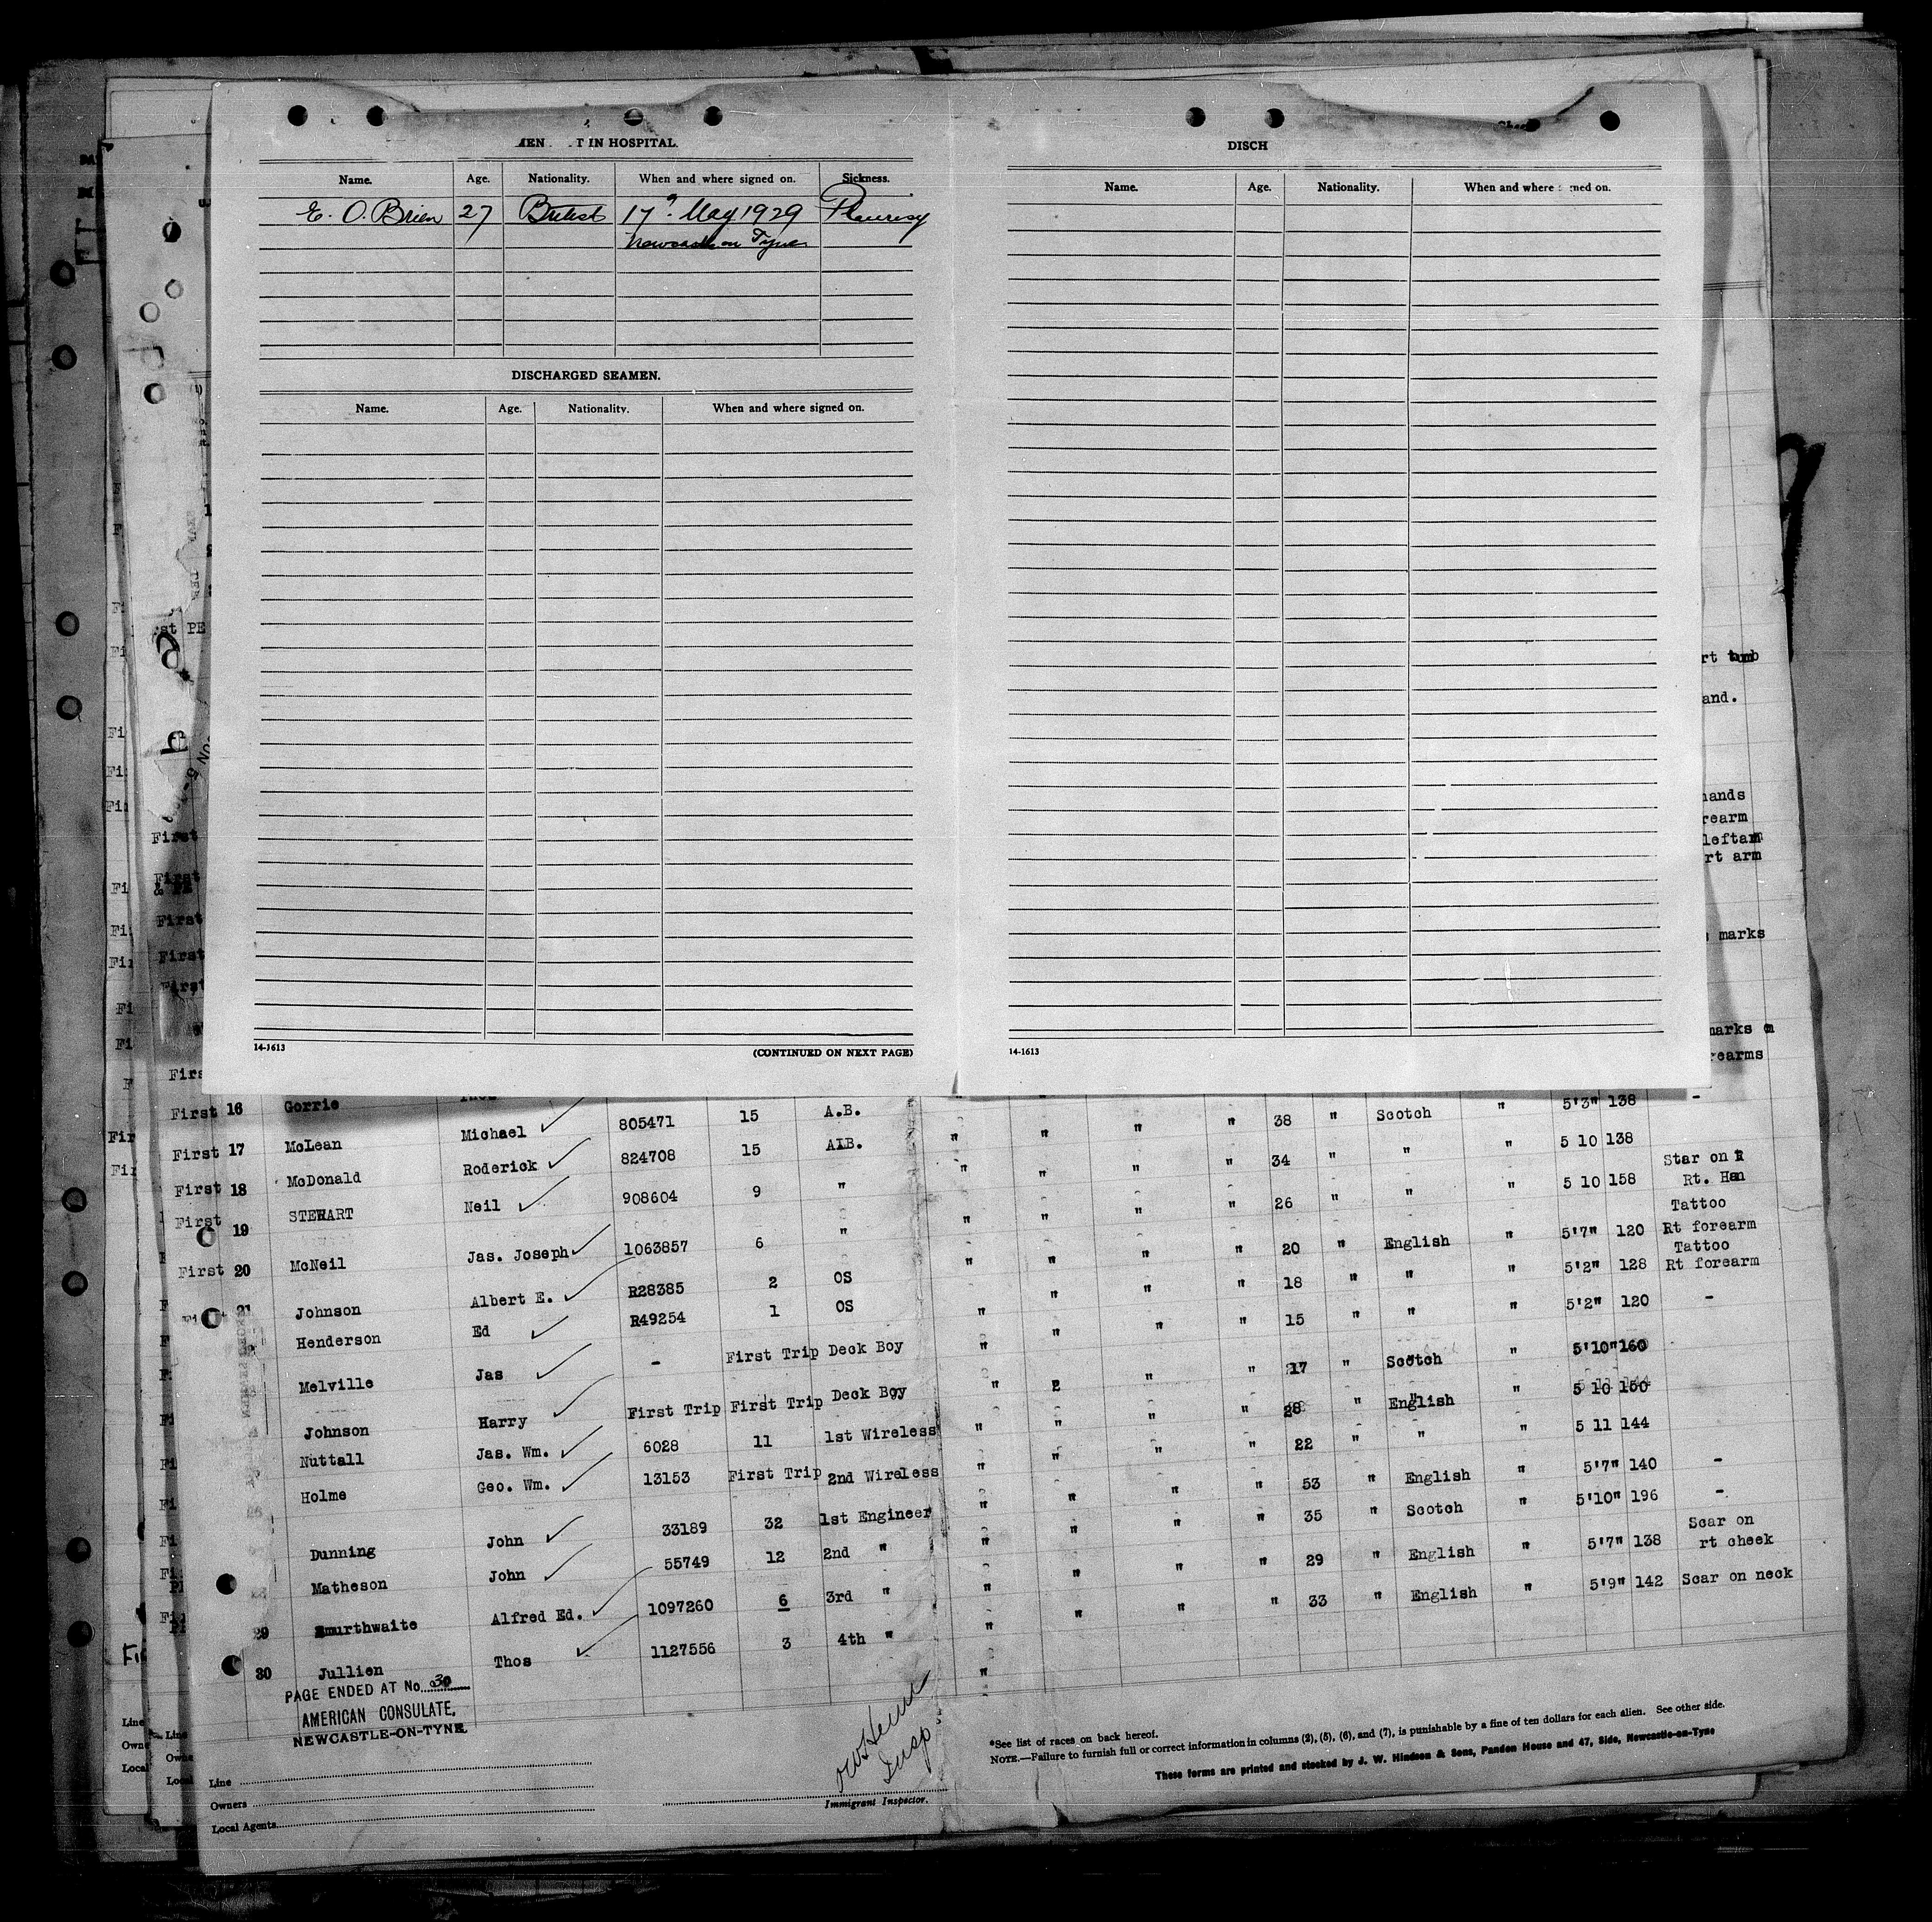 T IN HOSPITAL.
Name. Age. Nationality. When and where signed on. Sickness.
E. O. Brien 27 British 17 May 1929 Pleurisy
Newcastle on Tyne
DISCHARGED SEAMEN.
Name. Age. Nationality. When and where signed on.
14-1613 (CONTINUED ON NEXT PAGE)
DISCH
Name. Age. Nationality. When and where signed on.
14-1613
First 16 Gorrie
First 17 McLean Michael 805471 15 A.B. " " " " 38 " Scotch " 5'3" 138 -
First 18 McDonald Roderick 824708 15 A.B. " " " " 34 " " " 5 10 138
First 19 STEWART Neil 908604 9 " " " " " 26 " " " 5 10 158 Star on R
Rt. Han
First 20 McNeil Jas. Joseph 1063857 6 " " " " " 20 " English " 5'7" 120 Tattoo
Rt forearm
21 Johnson Albert E. R28385 2 OS " " " " 18 " " " 5'2" 128 Tattoo
Rt forearm
Henderson Ed R49254 1 OS " " " " 15 " " " 5'2" 120 -
Melville Jas - First Trip Deck Boy " " " " 17 " Scotch " 5'10" 160
Johnson Harry First Trip First Trip Deck Boy " " " " 28 " English " 5 10 150
Nuttall Jas. Wm. 6028 11 1st Wireless " " " " 22 " " " 5 11 144
Holme Geo. Wm. 13153 First Trip 2nd Wireless
Dunning John 33189 32 1st Engineer " " " " 53 " English " 5'7" 140 -
Matheson John 55749 12 2nd " " " " " 35 " Scotch " 5'10" 196 -
29 Smurthwaite Alfred Ed. 1097260 6 3rd " " " " " 29 " English " 5'7" 138 Scar on
rt cheek
30 Jullien Thos 1127556 3 4th " " " " " 33 " English " 5'9" 142 Scar on neck
PAGE ENDED AT No. 30
AMERICAN CONSULATE,
NEWCASTLE-ON-TYNE.
Line
Owners
Local Agents
Insp
Immigrant Inspector.
*See list of races on back hereof.
NOTE.—Failure to furnish full or correct information in columns (2), (5), (6), and (7), is punishable by a fine of ten dollars for each alien. See other side.
These forms are printed and stocked by J. W. Hindson & Sons, Pandon House and 47, Side, Newcastle-on-Tyne